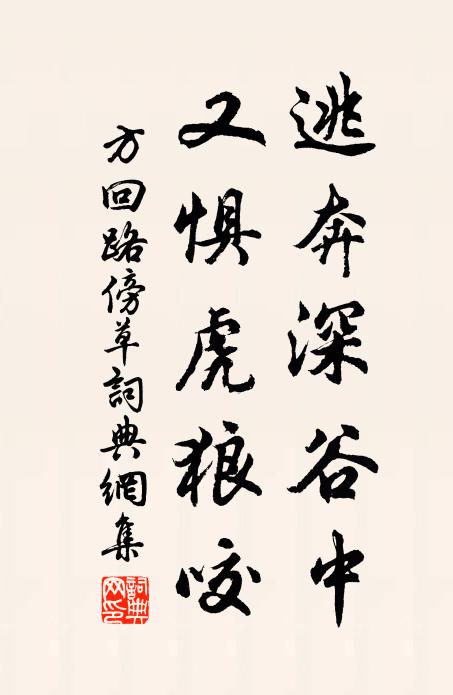 逃奔深谷中
又惧虎狼咬
方回路傍草詞典網集
詞典網印